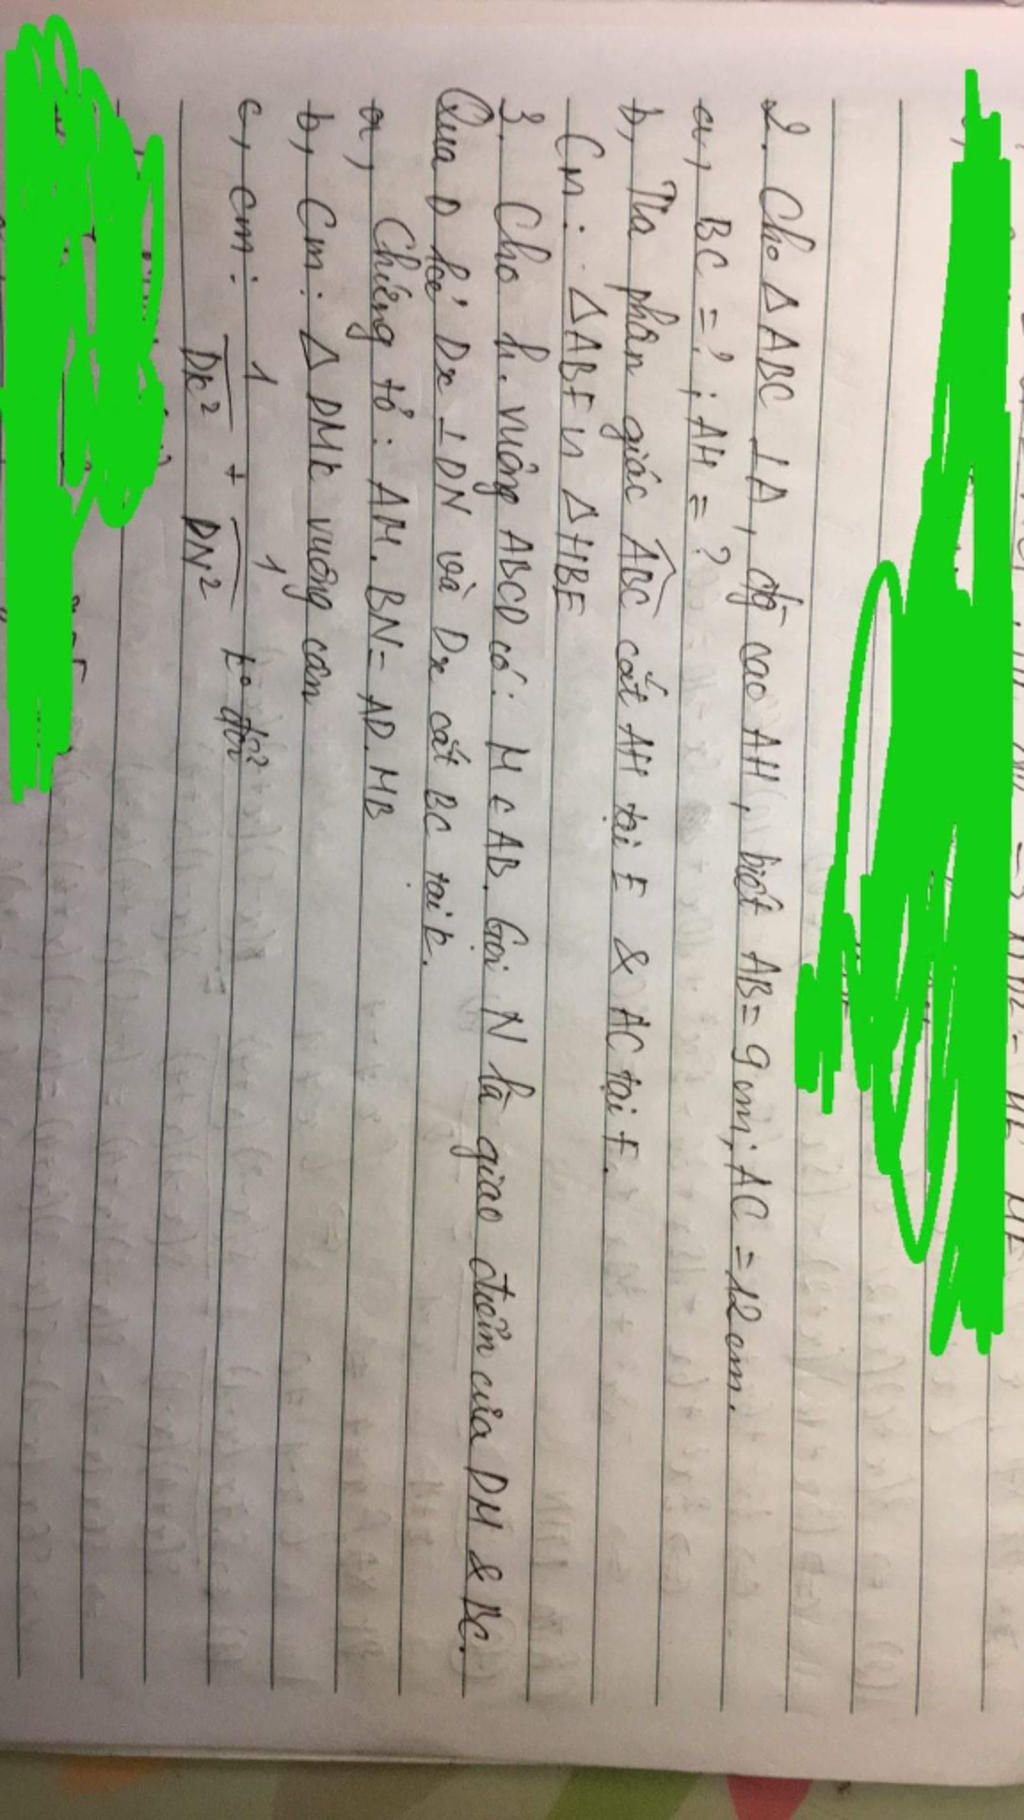 2. Cho Δ ABC ⊥ A, đg cao AH, biết AB = 9cm; AC = 12cm.
a, BC = ? ; AH = ?
b, Tia phân giác ABC cắt AH tại E & AC tại F.
Cm: Δ ABF ∽ Δ HBE
3. Cho h. vuông ABCD có: M ∈ AB. Gọi N là giao điểm của DM & BC.
Qua D kẻ Dx ⊥ DN và Dx cắt BC tại K.
a, Chứng tỏ: AM. BN = AD. MB
b, Cm: Δ DMK vuông cân
c, cm: 1/DK² + 1/DN² k° đổi